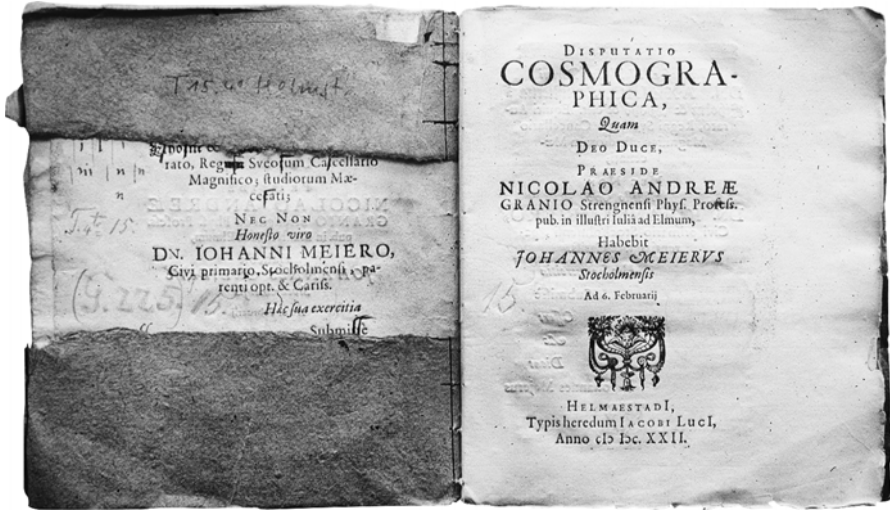 T 15. 4° Helmst.
rato, Regum Sveosum Cancellario
Magnifico; studiorum Mæ-
cenati;
NEC NON
Honesto viro
DN. IOHANNI MEIERO,
Civi primario, Stocholmensi, pa-
renti opt. & Cariss.
Hæc sua exercitia
Submisse
T. 4to 15.
(G. 225) 15.
DISPUTATIO
COSMOGRA-
PHICA,
Quam
DEO DUCE,
PRAESIDE
NICOLAO ANDREÆ
GRANIO Strengnensi Phys. Profess.
pub. in illustri Iuliâ ad Elmum,
Habebit
JOHANNES MEIERVS
Stocholmensis
Ad 6. Februarij
15
HELMAESTADI,
Typis heredum IACOBI LucI,
Anno cIↄ Iↄc. XXII.